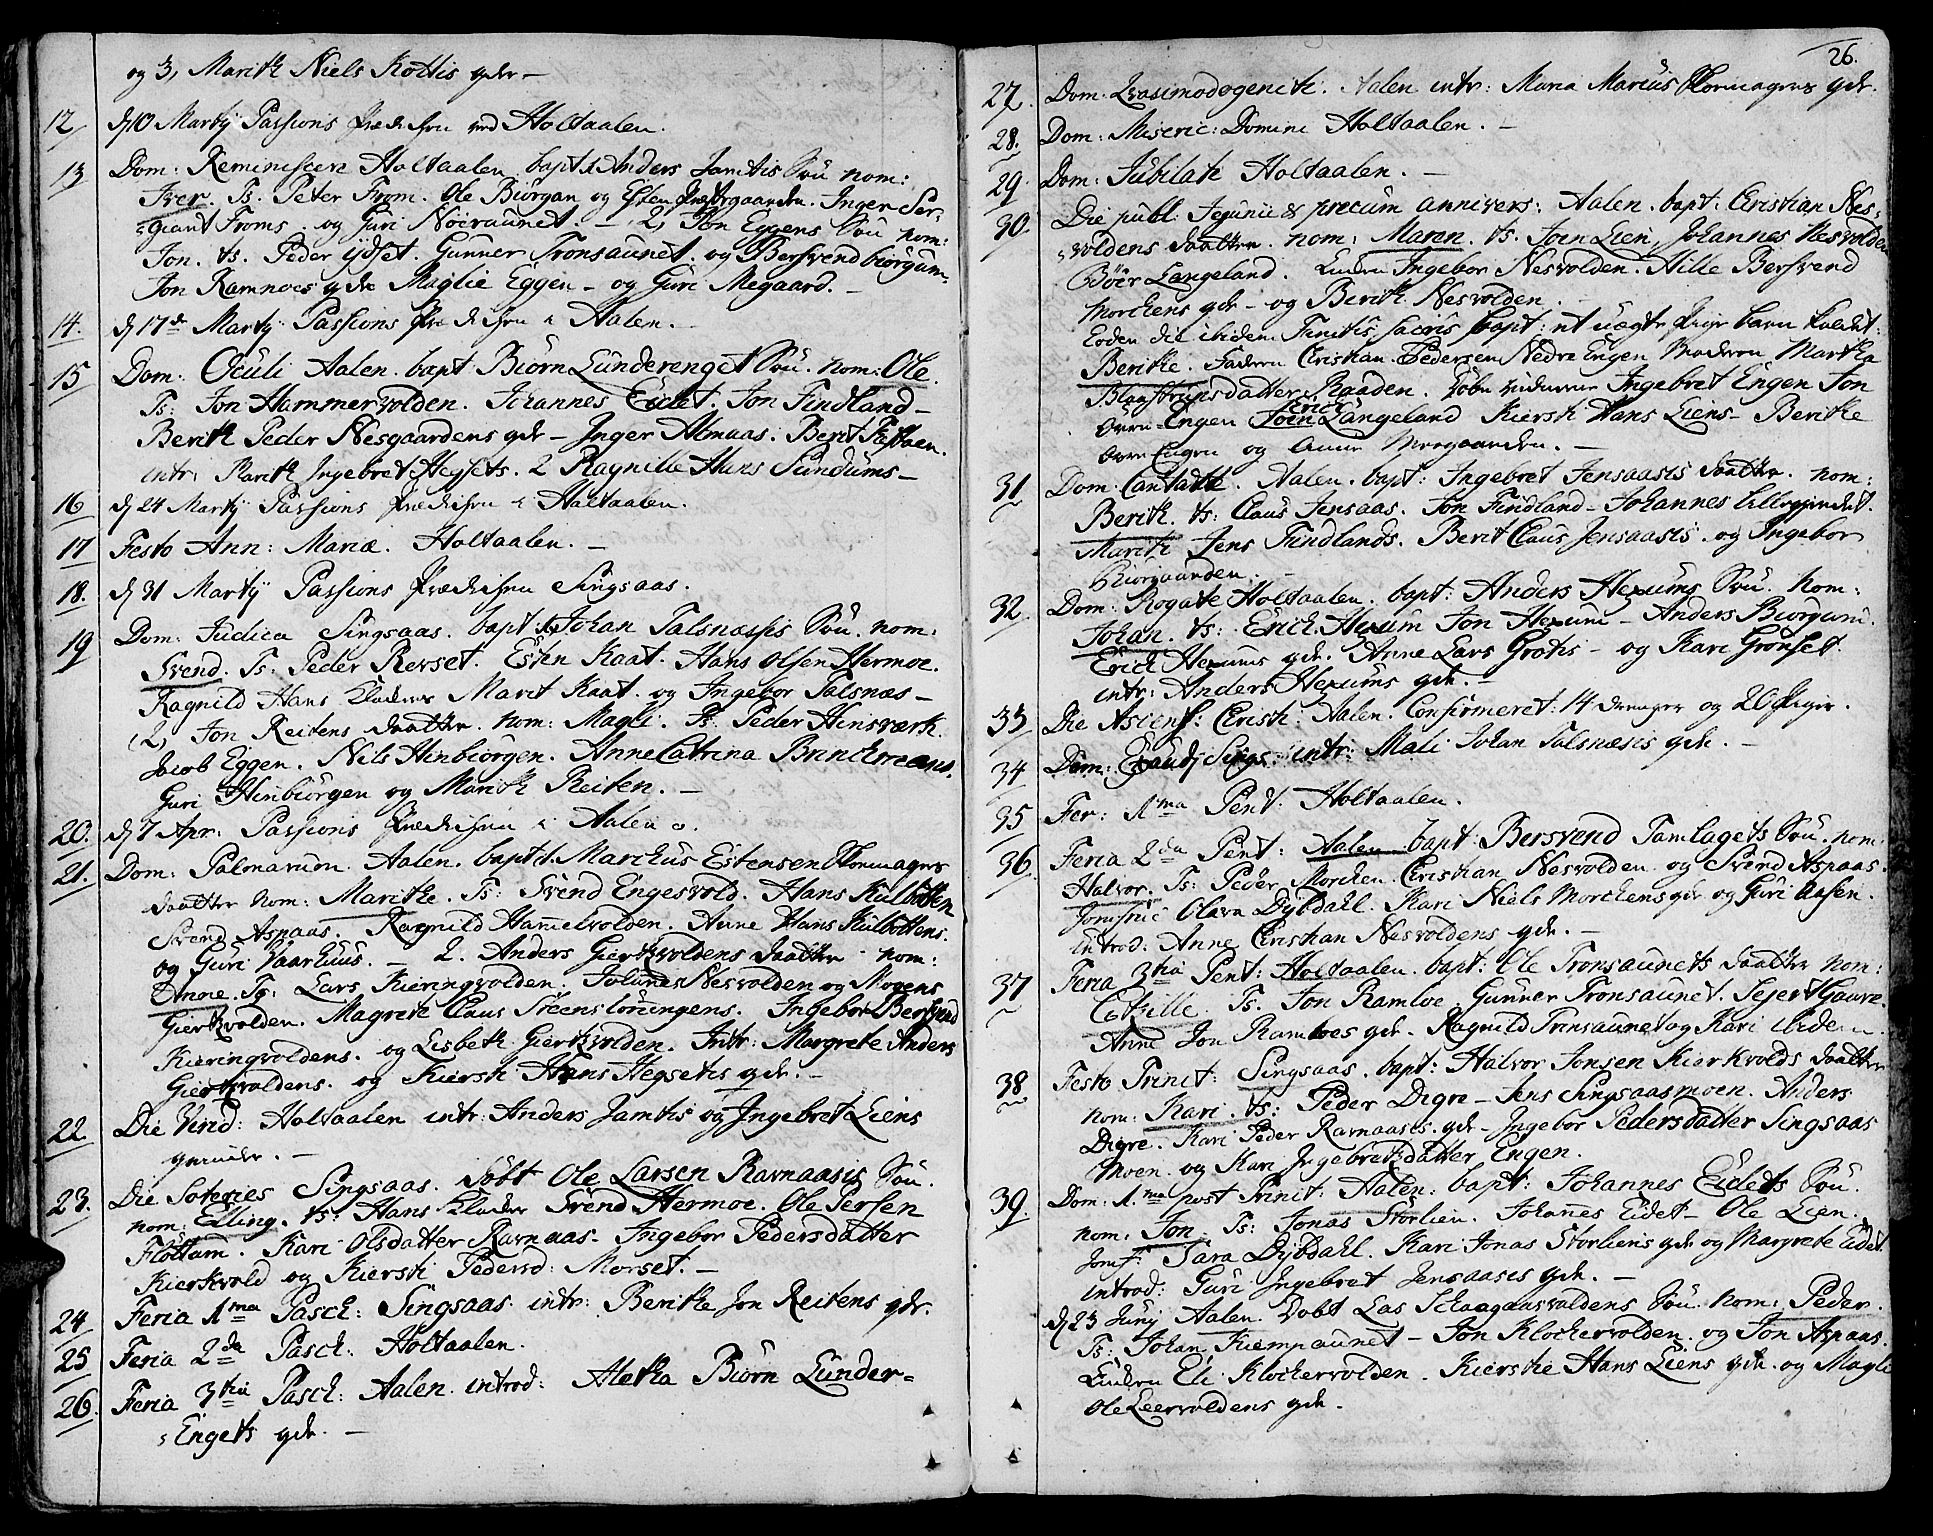 og 3, Marith Niels Kottis qde –
12/ d 10 Martÿ Passions Prædiken ved Holtaalen.
13 Dom: Reminiscere Holtaalen bapt: 1 Anders Jamtis Søn nom:
Iver. Ts. Peter From. Ole Biörgan og Esten Inger Ser-
=giant Froms. og Guri Nöiraunet. – 2, Jon Eggens Sön nom:
Jon. ts. Peder ÿdset. Gunner Tronsaunet. og Bersvend biorgum
Jon Ramnoes qde Maglie Eggen – og Guri Megaard. –
14. d 17de Martÿ Passions Prædiken i Aalen. –
15 Dom: Oculi Aalen. bapt Biörn Lünderenget Sön. nom: Ole.
Ts: Jon Hammervolden. Johannes Eidet. Jon Findland –
Berith Peder Nesgaardens qde – Inger Almaas. Berit
intr: Marith Ingebret Hegsets. 2 Ragnille Hans Sundums –
16 d 24 Martÿ Passions Prædiken i Holtaalen.
17 Festo Ann: Mariæ. Holtaalen. –
18. d 31 Martÿ Passions Prædiken Singsaas.
19 Dom: Judica Singsaas. bapt: 1, Johan Talsnæssis Sön. nom:
Svend. Ts. Peder Revset. Esten Kaat. Hans Olsen Hermoe.
Ragnild Hans Marit Kaat. og Ingebor Talsnæs –
(2) Jon Reitens Daatter. nom: Magli. Ts. Peder Hinsværk.
Jacob Eggen. Nils Hinbiörgen. Anne Catrina Brinchmans.
Guri Hinbiörgen og Marith Reiten. –
20. d 7 Apr: Passions Prædiken i Aalen.
21. Dom: Palmarum. Aalen. bapt 1. Marchus Estensen
Daatter nom: Marithe. Ts: Svend Engesvold. Hans Külbotten
Svend Aspaas. Ragnild Hammelvolden. Anne Hans Külbottens.
og Guri Vaarhuus. – 2. Anders Giertvoldens Daatter – nom:
Anne. Ts: Lars Kieringvolden. Johannes Nesvolden og Mogens
Giertvolden. Magrete Claus Steenslöungens. Ingebor Bersvend
Kieringvoldens. og Lisbeth Giertvolden. Intr: Margrete Anders
Giertvoldens. og Kiersti Hans Hegsetis qde. –
22. Die Virid: Holtaalen intr: Anders Jamtis og Ingebret Liens
qvinder. –
23. Die Soteries Singsaas. Döbt Ole Larsen Ramaasis Sön.
nom: Elling. ts: Hans Svend Hermoe. Ole Persen
Flottum. Kari Olsdatter Ramaas – Ingebor Pedersdatter
Kierkvold og Kiersti Pedersd: Morset. –
24 Feria 1ma Pasch: Singsaas intr: Berithe Jon Reitens qde.
25 Feria 2da Pasch: Holtaalen.
26. Feria 3tia Pasch: Aalen introd: Aletha Biörn Lünder=
=Engets qde. –
26.
27. Dom. Qvasimodogeniti. Aalen intr: Maria Marcus qde.
28. Dom: Miseric: Domini Holtaalen. –
29 Dom: Jubilate Holtaalen. –
30. Die publ: Jejunii & precum annivers: Aalen. bapt: Christian Nes=
=voldens Daatter. nom: Maren. ts. Joen Lien, Johannes Nesvolden
Böör Langeland. Ingebor Nesvolden. Hille Bersvend
Morchens qde – og Berith Nesvolden.
Eoden die ibidem Finitis sacris bapt: et uægte Pige barn kaldet:
Berithe. Faderen Christian Pedersen Nedre Engen Moderen Martha
Raaden. Ingebret Engen Jon
Övre Engen Erich Langeland Kiersti Hans Liens – Berithe
Övre Engen og Anne –
31 Dom: Cantate. Aalen. bapt: Ingebret Jensaasis Daatter. nom:
Berith. ts: Claus Jensaas. Jon Findland – Johannes
Marith Jens Findlands. Berit Claus Jensaasis. og Ingebor
32 Dom: Rogate Holtaalen. bapt: Anders Hexums Sön. nom:
Johan. ts: Erich Hexum Jon Hexum – Anders Biörgum.
Erich Hexums qde. Anne Lars Grotis – og Kari Grönset.
intr: Anders Hexums qde. –
33 Die Ascens: Christi: Aalen. Confirmeret: 14 Drenger og 20 Piger.
34 Dom: Exaudi Sings: intr: Mali Johan Talsnæsis qde. –
35 Fer: 1ma Pent: Holtaalen.
36 Feria 2da Pent: Aalen bapt: Bersvend Tamlagets Sön. nom:
Halvor. Ts: Peder Morchen. Christian Nesvolden og Svend Aspaas.
Jomfrue Olava Dÿbdahl. Kari Niels Morchens qde og Guri Aasen.
introd: Anne Christian Nesvoldens qde. –
37 Feria 3tia Pent: Holtaalen. bapt: Ole Tronsaunets Daatter nom:
Ts. Jon Ramloe. Gunner Tronsaunet. Sejert Gaare.
Anne Jon Ramloes qde. Ragnild Tronsaunet og Kari ibidem.
38 Festo Trinit: Singsaas. bapt: Halvor Jonsen Kierkvolds Daatter
nom: Kari. ts: Peder Digre – Jens Singsaasmoen. Anders
Digre. Kari Peder Ramaases qde – Ingebor Pedersdatter Singsaas
Moen. og Kari Ingebretsdatter Engen.
39. Dom: 1ma post Trinit: Aalen. bapt: Johannes Eidets Sön.
nom: Jon. Ts: Jonas Storlien. Johannes Eidet – Ole Lien.
Jomf: Sara Dÿbdahl. Kari Jonas Storliens qde og Margrete Eidet.
introd: Guri Ingebret Jensaases qde. –
d 23 Junÿ Aalen. Döbt Las Sön. nom: Peder.
Ts: Johan Kiempaunet – Jon Klochervolden. og Jon Aspaas.
Eli Klochervolden. Kiersthe Hans Liens qde. og Magli
Ole Leervoldens qde.